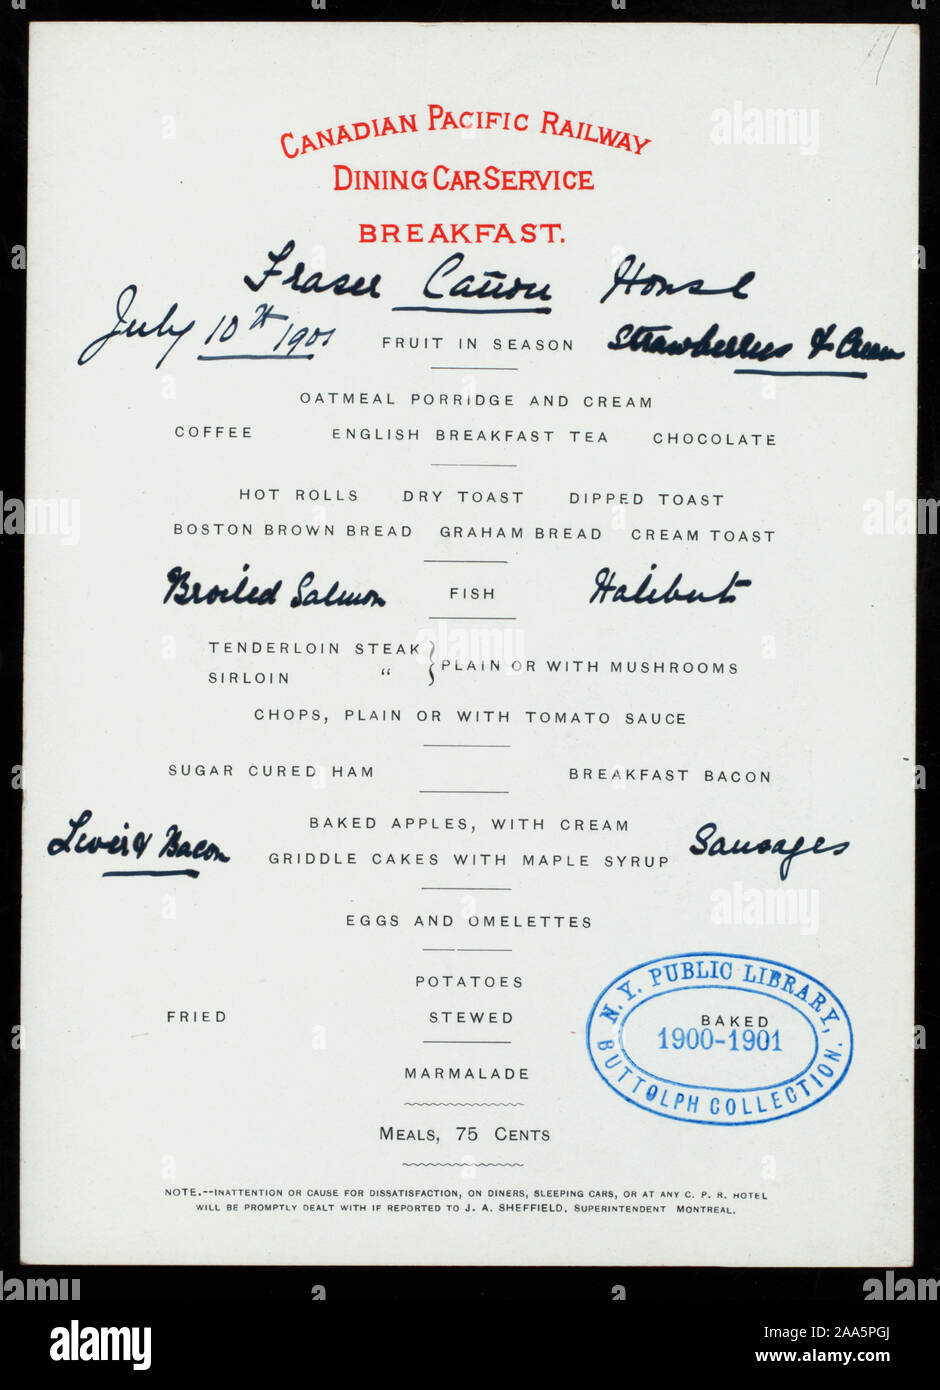 CANADIAN PACIFIC RAILWAY
DINING CAR SERVICE
BREAKFAST.
Fraser Cañon House
July 10th 1901 FRUIT IN SEASON Strawberries & Cream
OATMEAL PORRIDGE AND CREAM
COFFEE ENGLISH BREAKFAST TEA CHOCOLATE
HOT ROLLS DRY TOAST DIPPED TOAST
BOSTON BROWN BREAD GRAHAM BREAD CREAM TOAST
Broiled Salmon FISH Halibut
TENDERLOIN STEAK
SIRLOIN “ } PLAIN OR WITH MUSHROOMS
CHOPS, PLAIN OR WITH TOMATO SAUCE
SUGAR CURED HAM BREAKFAST BACON
BAKED APPLES, WITH CREAM
Liver & Bacon GRIDDLE CAKES WITH MAPLE SYRUP Sausages
EGGS AND OMELETTES
POTATOES
FRIED STEWED BAKED
N.Y. PUBLIC LIBRARY,
1900-1901
BUTTOLPH COLLECTION.
MARMALADE
MEALS, 75 CENTS
NOTE.--INATTENTION OR CAUSE FOR DISSATISFACTION, ON DINERS, SLEEPING CARS, OR AT ANY C. P. R. HOTEL
WILL BE PROMPTLY DEALT WITH IF REPORTED TO J. A. SHEFFIELD, SUPERINTENDENT MONTREAL.
alamy
Image ID: 2AA5PGJ
www.alamy.com